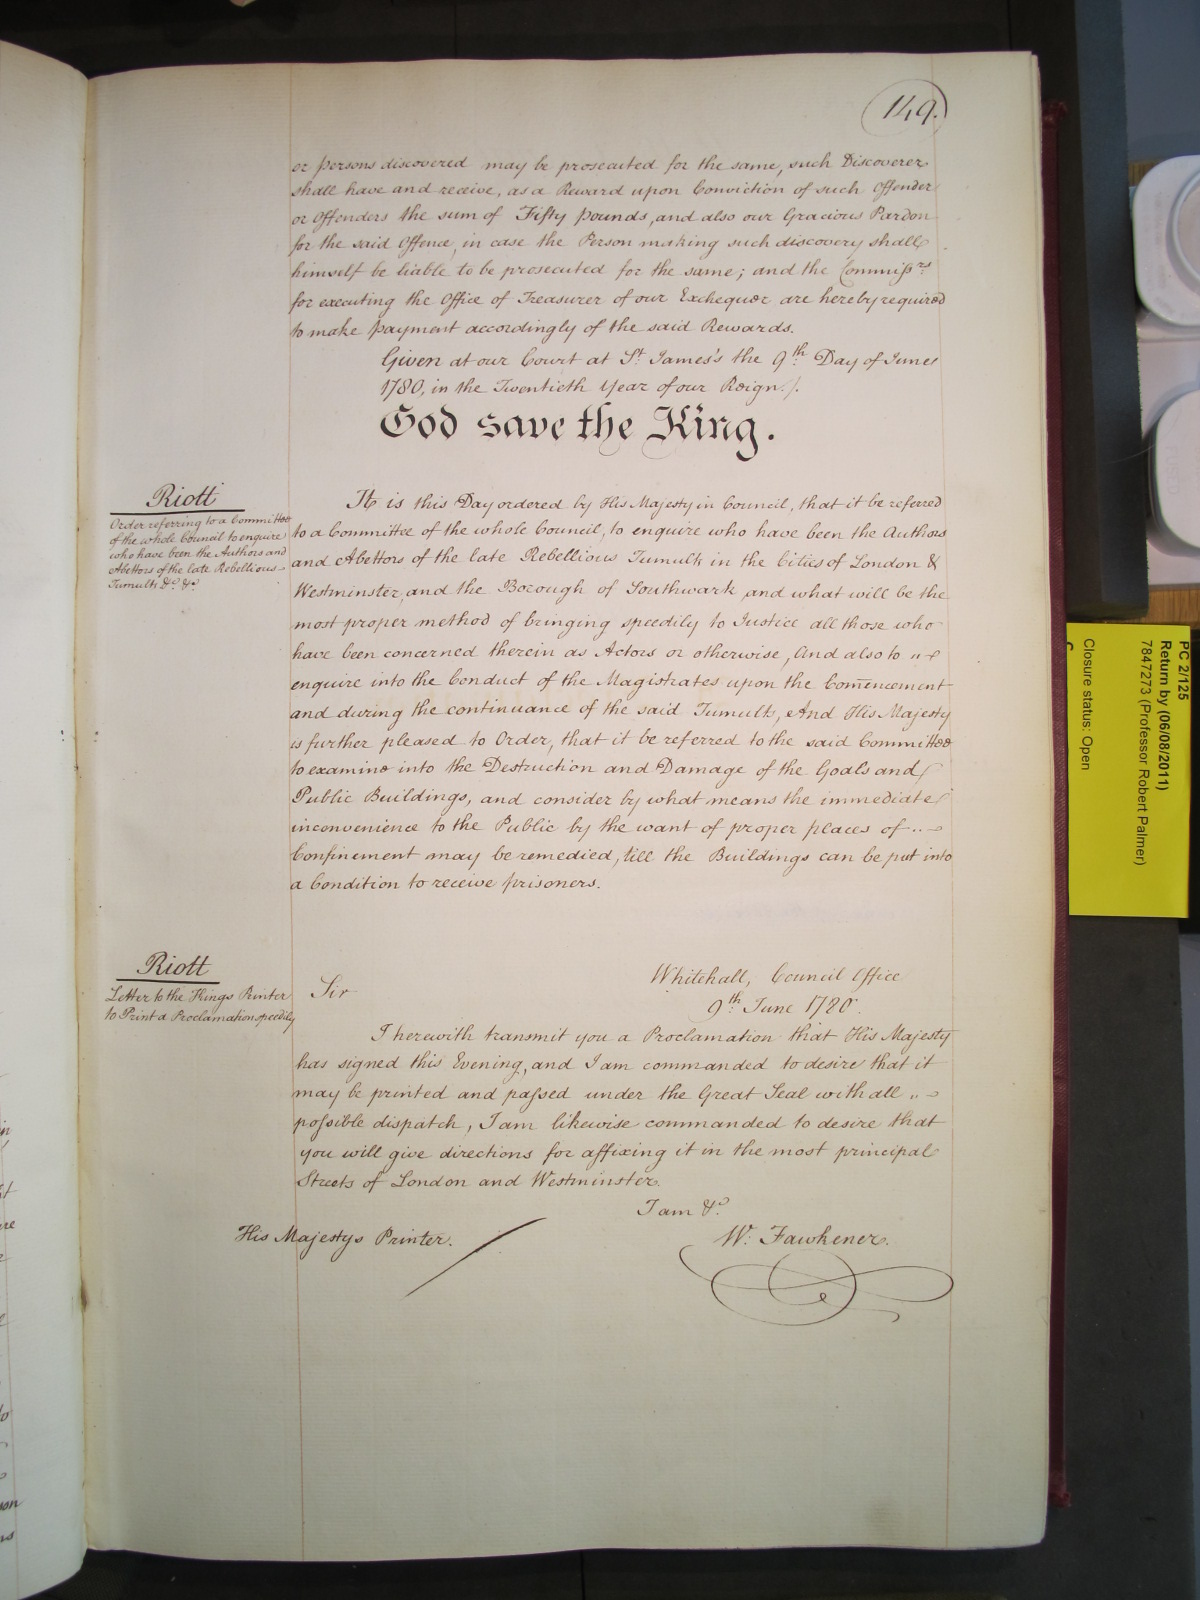 149.
or persons discovered may be prosecuted for the same, such Discoverer
shall have and receive, as a Reward upon Conviction of such Offender
or Offenders the sum of Fifty pounds, and also our Gracious Pardon
for the said Offence, in case the Person making such discovery shall
himself be liable to be prosecuted for the same; and the Commissrs
for executing the Office of Treasurer of our Exchequer are hereby required
to make payment accordingly of the said Rewards.
Given at our Court at St. James's the 9th Day of June
1780, in the Twentieth Year of our Reign./.
God save the King.
Riott
Order referring to a Committee
of the whole Council to enquire
who have been the Authors and
Abettors of the late Rebellious
Tumults &c. &c.
It is this Day ordered by His Majesty in Council, that it be referred
to a Committee of the whole Council, to enquire who have been the Authors
and Abettors of the late Rebellious Tumults in the Cities of London &
Westminster, and the Borough of Southwark, and what will be the
most proper method of bringing speedily to Justice all those who
have been concerned therein as Actors or otherwise, And also to
enquire into the Conduct of the Magistrates upon the Com̄encement
and during the continuance of the said Tumults, And His Majesty
is further pleased to Order, that it be referred to the said Committee
to examine into the Destruction and Damage of the Goals and
Public Buildings, and consider by what means the immediate
inconvenience to the Public by the want of proper places of
Confinement may be remedied, till the Buildings can be put into
a Condition to receive prisoners.
Riott
Letter to the Kings Printer
to Print a Proclamation speedily
Whitehall, Council Office
9th June 1780.
Sir
I herewith transmit you a Proclamation that His Majesty
has signed this Evening, and I am commanded to desire that it
may be printed and passed under the Great Seal with all
possible dispatch, I am likewise commanded to desire that
you will give directions for affixing it in the most principal
Streets of London and Westminster.
I am &c.
His Majestys Printer.
W. Fawkener.
PC 2/125
Return by (06/08/2011)
7847273 (Professor Robert Palmer)
Closure status: Open